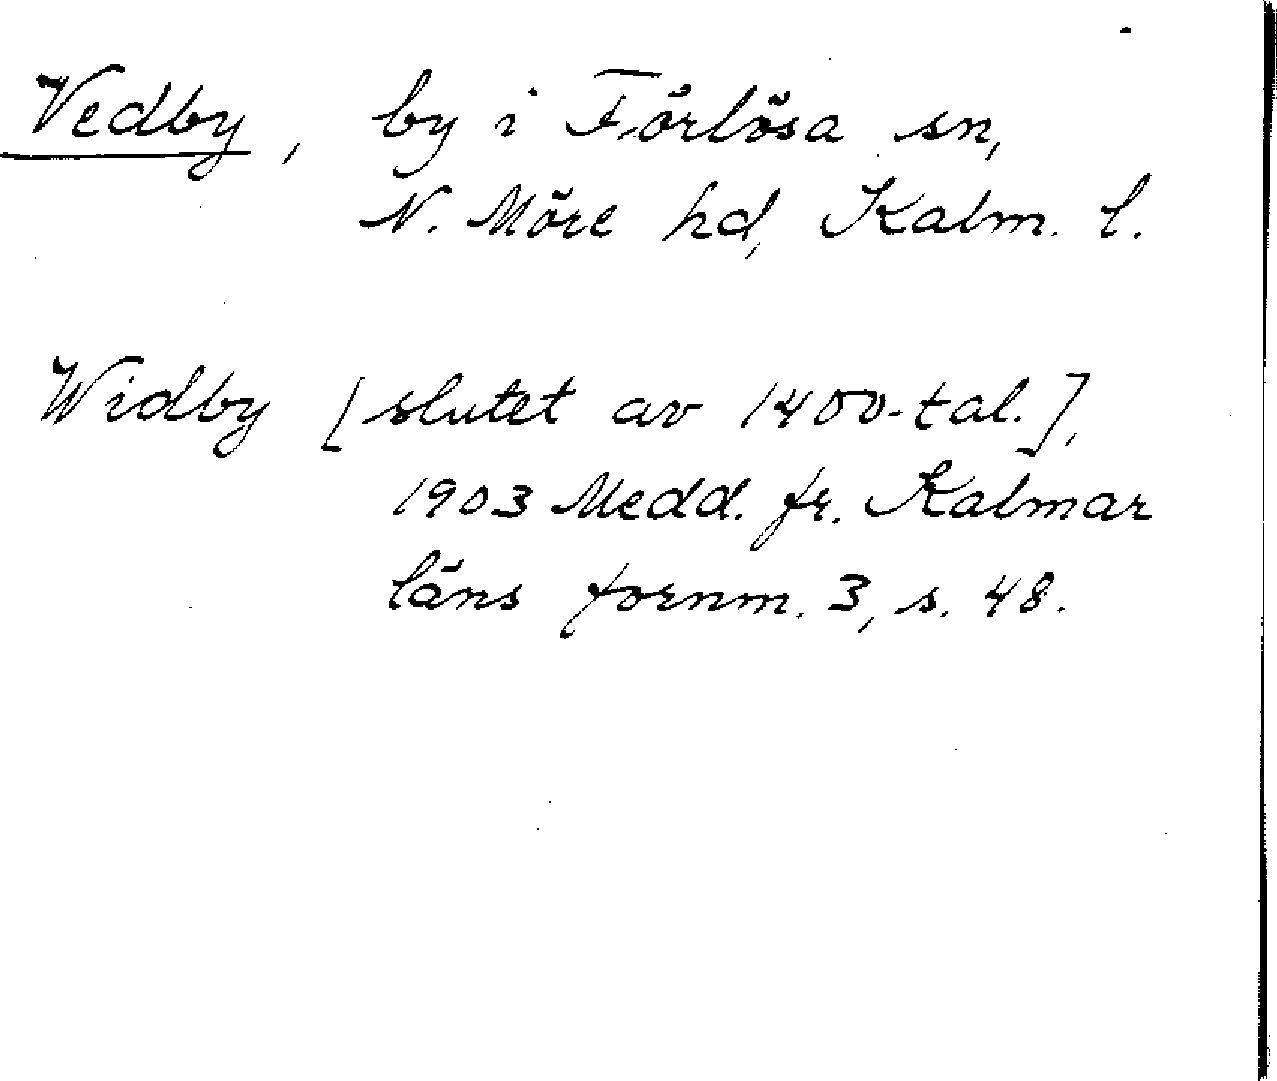 Vedby, by i Förlösa sn,
N. Möre hd, Kalm. l.
Widby [slutet av 1400-tal.],
1903 Medd. fr. Kalmar
läns fornm. 3, s. 48.